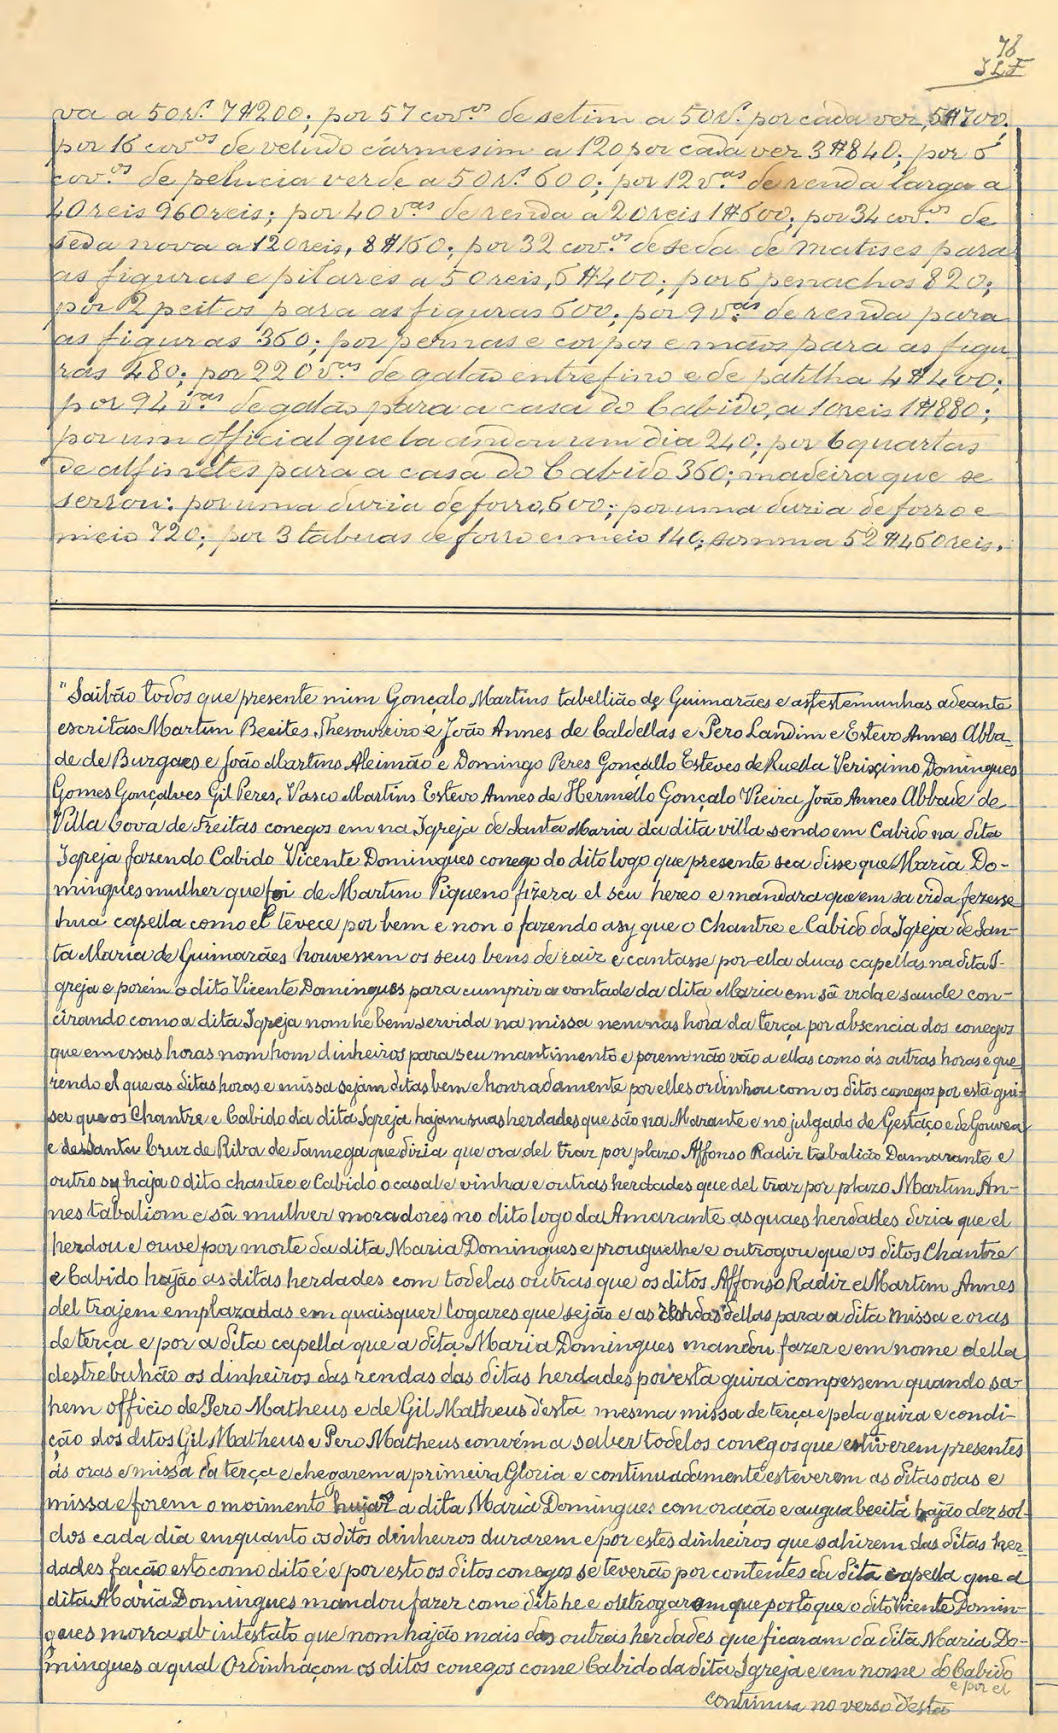 76
J L F
va a 50 r.s 7$200; por 57 cov.os de setim a 50 r.s por cada vez, 5$700;
por 16 cov.os de veludo carmesim a 120 por cada vez 3$840; por 6
cov.os de pelucia verde a 50 r.s 600; por 12 v.as de renda larga a
40 reis 960 reis; por 40 v.as de renda a 20 reis 1$600; por 34 cov.os de
seda nova a 120 reis, 8$160; por 32 cov.os de seda de matises para
as figuras e pilares a 50 reis, 6$400; por 6 penachos 820;
por 2 peitos para as figuras 600; por 9 v.as de renda para
as figuras 360; por pernas e corpos e mãos para as figu-
ras 480; por 220 v.as de galão entrefino e de patilha 4$400;
por 94 v.as de galão para a casa do Cabido, a 10 reis 1$880;
por um official que la andou um dia 240; por 6 quartas
de alfinetes para a casa do Cabido 360; madeira que se
serrou: por uma duzia de forro, 600; por uma duzia de forro e
meio 720; por 3 taboas de forro e meio 140; somma 52$460 reis.
"Saibão todos que presente mim Gonçalo Martins tabellião de Guimarães e as testemunhas adeante
escritas Martim Beeites, Thesoureiro e João Annes de Caldellas e Pero Landim e Estevo Annes Abba-
de de Burgaes e João Martins Aleimão e Domingo Peres Gonçallo Esteves de Ruella Verissimo Domingues
Gomes Gonçalves Gil Peres, Vasco Martins Estevo Annes de Hermello Gonçalo Vieira João Annes Abbade de
Villa Cova de Freitas conegos em na Igreja de Santa Maria da dita villa sendo em Cabido na dita
Igreja fazendo Cabido Vicente Domingues conego do dito logo que presente sea disse que Maria Do-
mingues mulher que foi de Martim Piqueno fizera el seu hereo e mandara que em sa vida fezesse
hua capella como el tevece por bem e non o fazendo asy que o Chantre e Cabido da Igreja de San-
ta Maria de Guimarães houvessem os seus bens de raiz e cantasse por ella duas capellas na dita I-
greja e porem o dito Vicente Domingues para cumprir a vontade da dita Maria em sã vida e saude con-
cirando como a dita Igreja nom he bem servida na missa nem nas hora da terça por absencia dos conegos
que em essas horas nom hom dinheiros para seu mantimento e porem não vão a ellas como ás outras horas e que-
rendo el que as ditas horas e missa sejam ditas bem e honradamente por elles ordinhou com os ditos conegos por esta gui-
sa que os Chantre e Cabido da dita Igreja hajam suas herdades que são na Marante e no julgado de Gestaço e de Gouvea
e de Santa Cruz de Riba de Tamega que diria que ora del traz por plazo Affonso Radiz tabalião Damarante e
outro sy haja o dito chantre e Cabido o casal e vinha e outras herdades que del traz por plazo Martim An-
nes tabaliom e sã mulher moradores no dito logo da Amarante as quaes herdades dizia que el
herdou e ouve por morte da dita Maria Domingues e prouguelhe e outrogou que os ditos Chantre
e Cabido hajão as ditas herdades com todelas outras que os ditos Affonso Radiz e Martim Annes
del trajem emplazadas em quaisquer logares que sejão e as rendas dellas para a dita missa e oras
de terça e por a dita capella que a dita Maria Domingues mandou fazer e em nome della
destrebuhão os dinheiros das rendas das ditas herdades por esta guiza compessem quando sa-
hem officio de Pero Matheus e de Gil Matheus d'esta mesma missa de terça e pela guiza e condi-
ção dos ditos Gil Matheus e Pero Matheus convém a saber todelos conegos que estiverem presentes
ás oras e missa da terça e chegarem a primeira Gloria e continuadamente esteverem as ditas oras e
missa e forem o moimento hu jaz a dita Maria Domingues com oração e augua beeita hajão dez sol-
dos cada dia emquanto os ditos dinheiros durarem e por estes dinheiros que sahirem das ditas her-
dades fação esto como dito é e por esto os ditos conegos se teverão por contentes da dita capella que a
dita Maria Domingues mandou fazer como dito he e outrogaram que posto que o dito Vicente Domin-
gues morra ab intestato que nom hajão mais das outras herdades que ficaram da dita Maria Do-
mingues a qual Ordinhaçom os ditos conegos come Cabido da dita Igreja e em nome do Cabido
e por el
continua no verso desta